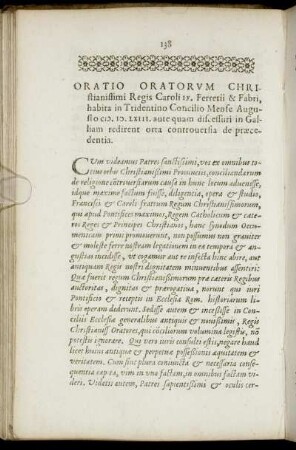 138
ORATIO ORATORVM CHRI-
stianissimi Regis Caroli IX. Ferrerii & Fabri,
habita in Tridentino Concilio Mense Augu-
sto CIƆ. IƆ. LXIII. ante quam discessuri in Gal-
liam redirent orta controuersia de præce-
dentia.
CVm videamus Patres sanctissimi, vos ex omnibus to-
tius orbis Christianissimi Prouinciis, conciliandarum
de religione controuersiarum causa in hunc locum aduenisse,
idque maximo factum fuisse, diligentia, opera & studio,
Francisci & Caroli fratrum Regum Christianissimorum,
qui apud Pontifices maximos, Regem Catholicum & cæte-
ros Reges & Principes Christianos, hanc Synodum Oecu-
menicam primi promouerunt, non possumus non grauiter
& molestè ferre nostram legationem in ea tempora & an-
gustias incidisse, vt cogamur aut re infecta hinc abire, aut
antiquam Regis nostri dignitatem minuentibus assentiri:
Quæ fuerit regum Christianissimorum præ cæteris Regibus
auctoritas, dignitas & prærogatiua, norunt qui iuri
Pontificio & recepto in Ecclesia Rom. historiarum li-
bris operam dederunt. Sedisse autem & incessisse in Con-
ciliis Ecclesiæ generalibus antiquis & nouissimis, Regis
Christianiss. Oratores, qui cōciliorum volumina legistis, nō
potestis ignorare. Qui vero iuris consulti estis, negare haud
licet huius antiquæ & perpetuæ possessionis æquitatem &
veritatem. Cum sint plura coniuncta & necessaria conse-
quentia capta, vim in vna factam, in omnibus factam vi-
deri. Videtis autem, Patres sapientissimi & oculis cer-